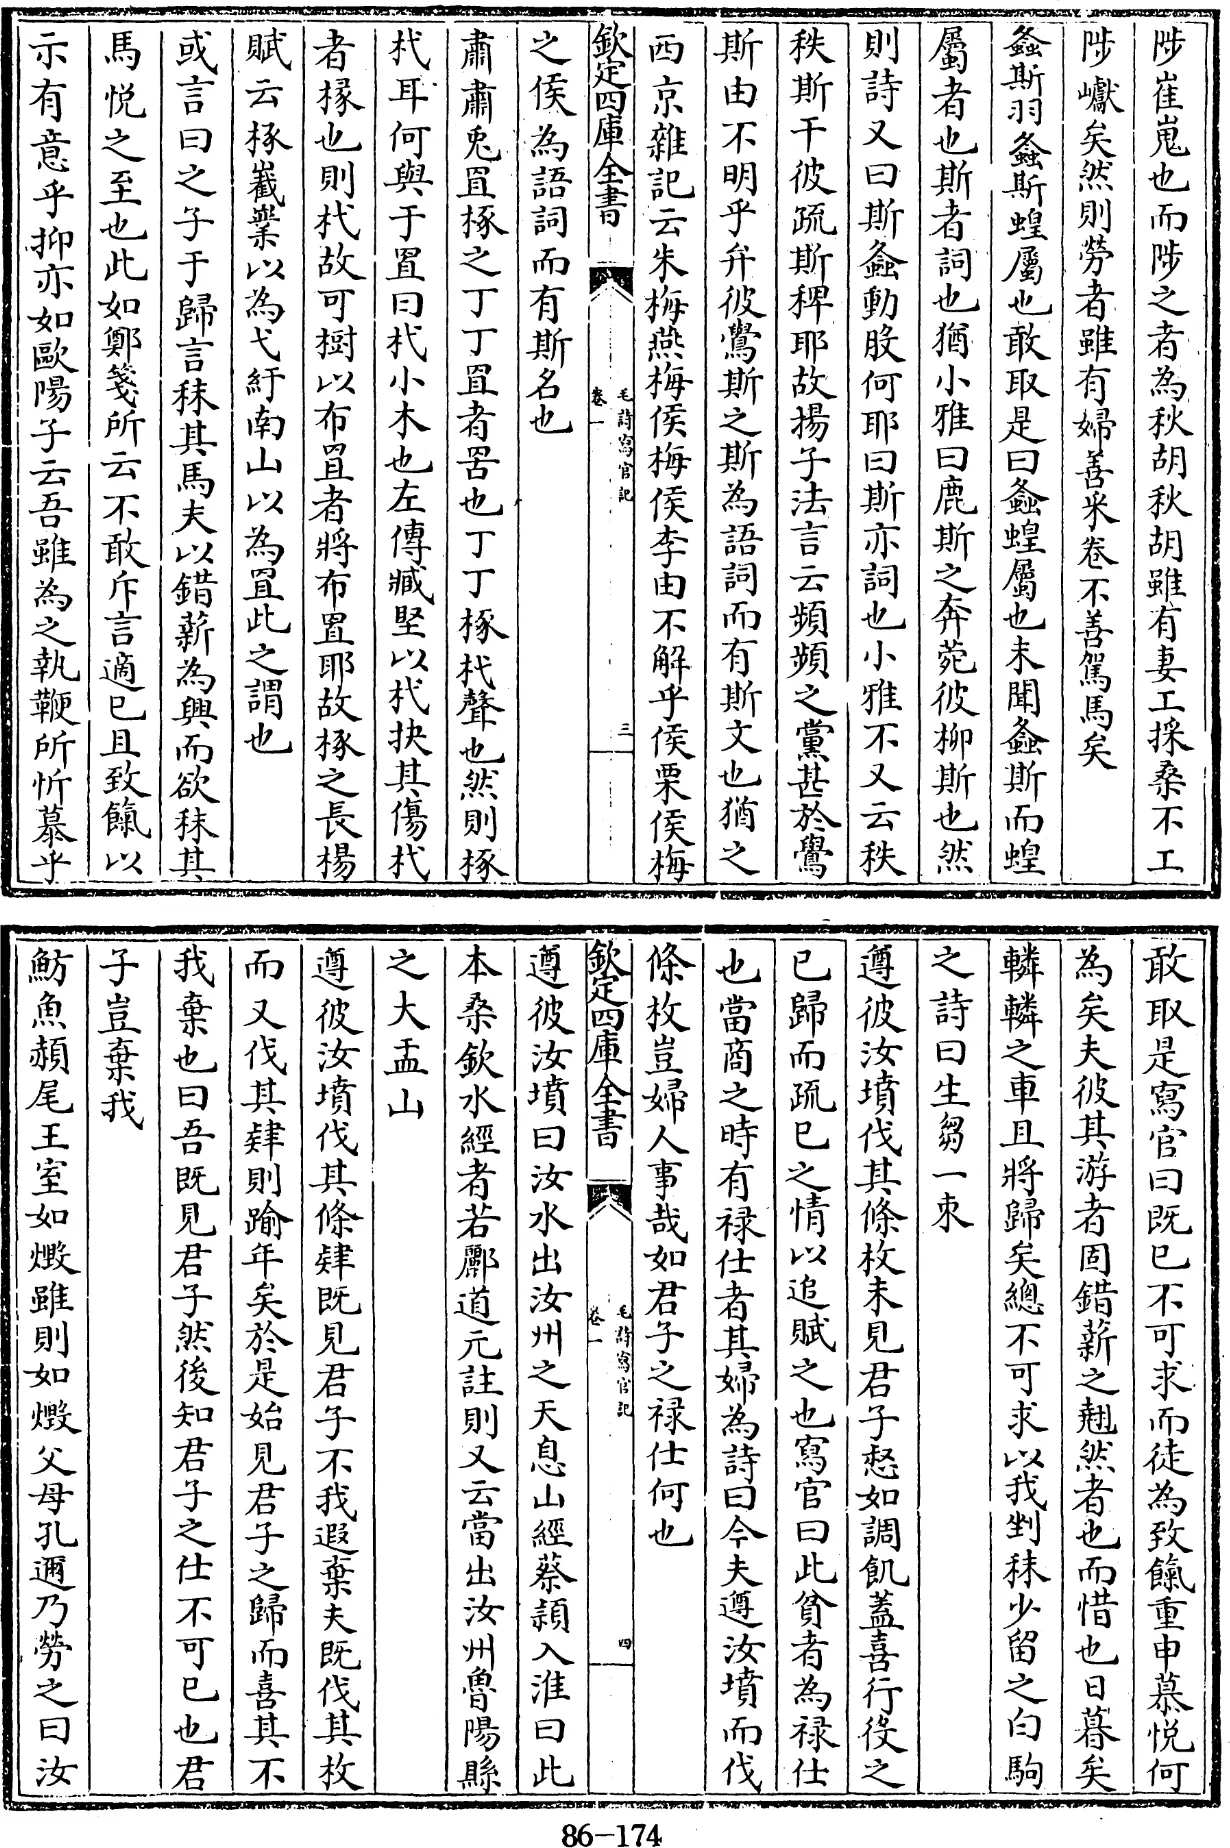 陟崔嵬也而陟之者為秋胡秋胡雖有妻工採桑不工
陟巘矣然則勞者雖有婦善釆卷不善駕馬矣
螽斯羽螽斯蝗屬也敢取是曰螽蝗屬也未聞螽斯而蝗
屬者也斯者詞也猶小雅曰鹿斯之奔菀彼柳斯也然
則詩又曰斯螽動股何耶曰斯亦詞也小雅不又云秩
秩斯干彼疏斯稗耶故揚子法言云頻頻之黨甚於鷽
斯由不明乎弁彼鸒斯之斯為語詞而有斯文也猶之
西京雜記云朱梅燕梅侯梅侯李由不解乎侯栗侯梅
欽定四庫全書
毛詩寫官記
卷一
三
之侯為語詞而有斯名也
肅肅兎罝椓之丁丁罝者罟也丁丁椓杙聲也然則椓
杙耳何與于罝曰杙小木也左傳臧堅以杙抉其傷杙
者椽也則杙故可樹以布罝者將布罝耶故椓之長楊
賦云椓嶻嶪以為弋紆南山以為罝此之謂也
或言曰之子于歸言秣其馬夫以錯薪為興而欲秣其
馬悅之至也此如鄭箋所云不敢斥言適已且致餼以
示有意乎抑亦如歐陽子云吾雖為之執鞭所忻慕乎
敢取是寫官曰既已不可求而徒為致餼重申慕悅何
為矣夫彼其游者固錯薪之翹然者也而惜也日暮矣
轔轔之車且將歸矣總不可求以我剉秣少留之白駒
之詩曰生芻一束
遵彼汝墳伐其條枚未見君子惄如調飢蓋喜行役之
已歸而疏已之情以追賦之也寫官曰此貧者為禄仕
也當商之時有禄仕者其婦為詩曰今夫遵汝墳而伐
條枚豈婦人事哉如君子之禄仕何也
欽定四庫全書
毛詩寫官記
卷一
四
遵彼汝墳曰汝水出汝州之天息山經蔡潁入淮曰此
本桑欽水經者若酈道元註則又云當出汝州魯陽縣
之大盂山
遵彼汝墳伐其條肄既見君子不我遐棄夫既伐其枚
而又伐其肄則踰年矣於是始見君子之歸而喜其不
我棄也曰吾既見君子然後知君子之仕不可已也君
子豈棄我
魴魚頳尾王室如燬雖則如燬父母孔邇乃勞之曰汝
86-174